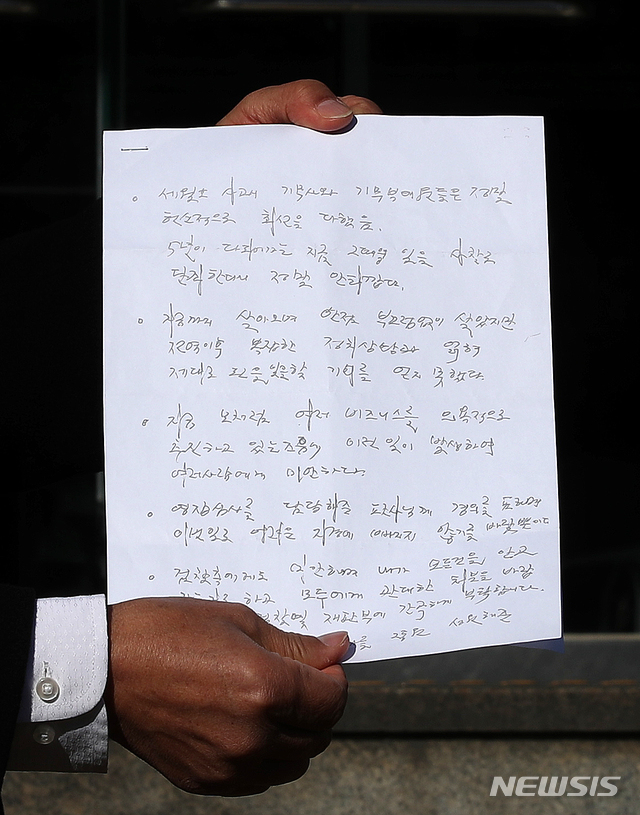 세월호 사고시 기무사와 기무부대원들은 정말
헌신적으로 최선을 다했음.
5년이 다되어가는 지금 그때의 일을 사찰로
단죄한다니 정말 안타깝다.
지금까지 살아오며 한점 부끄럼없이 살았지만
전역이후 복잡한 정치상황과 얽혀
제대로 된 일을 할 기회를 얻지 못했다.
지금 모처럼 여러 비즈니스를 의욕적으로
추진하고 있는 즈음에 이런 일이 발생하여
여러사람에게 미안하다.
영장심사를 담당해준 판사님께 경의를 표하며
이번일로 어려움을 지경에 빠지지 않기를 바랄뿐이다
검찰측에게도 미안하며 내가 모든것을 안고
하고 모두에게 관대한 처분을 바람
재판부에 간곡하게 부탁합니다.
성원해준
NEWSIS